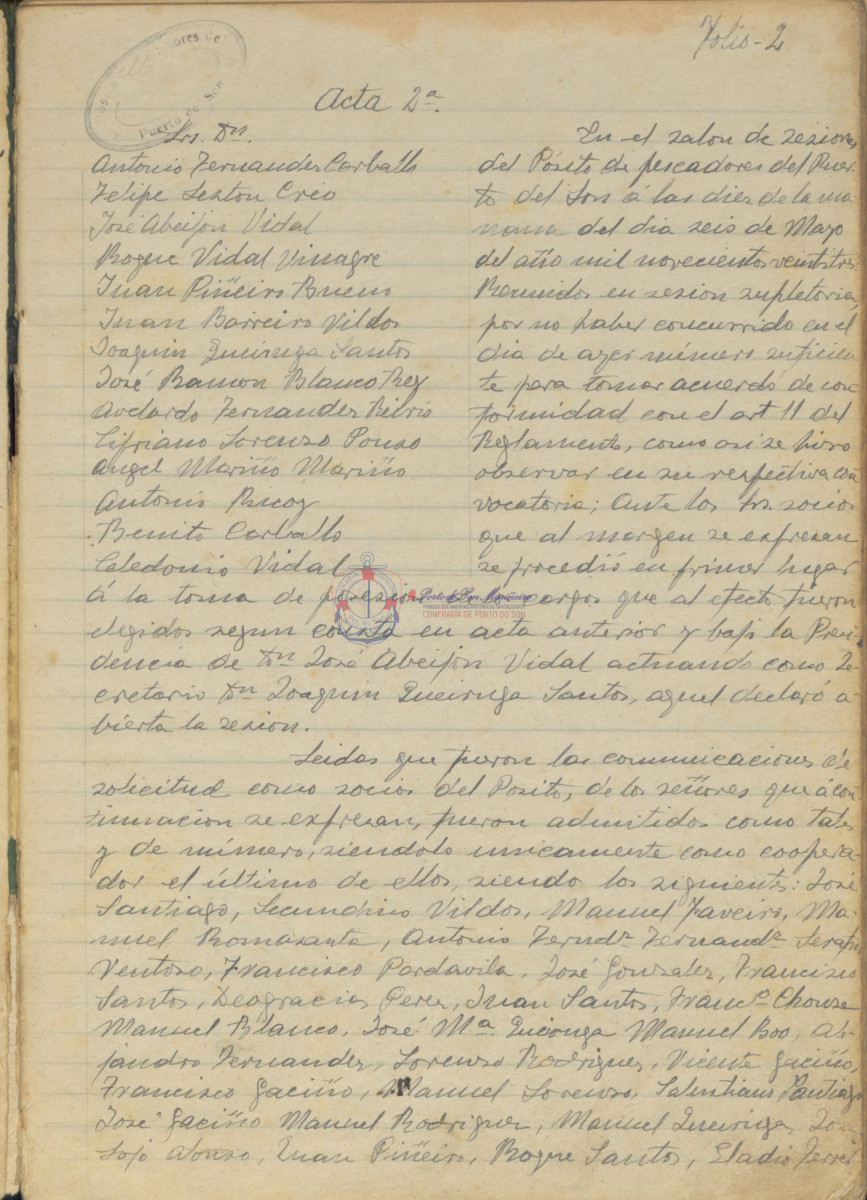 Folio-2
Pósito de Pescadores de
Puerto del Son
Acta 2ª.
Srs. Dn.
Antonio Fernandez Carballo
Felipe Sexton Crio
José Abeijon Vidal
Roque Vidal Vinagre
Juan Piñeiro Bueno
Juan Barreiro Vildos
Joaquin Queiruga Santos
José Ramon Blanco Rey
Avelardo Fernandez
Cipriano Lorenzo Pouso
Angel Mariño Mariño
Antonio Rucoy
Benito Carballo
Celedonio Vidal
En el salon de zeziones
del Pósito de pescadores del Puer-
to del Son á las diez de la ma-
nana del dia seis de Mayo
del año mil novecientos veintitres.
Reunidos en sezion supletoria,
por no haber concurrido en el
dia de ayer número suficien
te para tomar acuerdó de con
formidad con el art 11 del
Reglamento, como asi se hizo
observar en su respectiva con
vocatoria; Ante los srs. socios
que al margen se expresan
se procedió en primer lugar
á la toma de posezion de cargos que al efecto fueron
elegidos segun consta en acta anterior y bajo la Presi
dencia de Dn José Abeijon Vidal actuando como Se-
cretario Dn Joaquin Queiruga Santos, aquel declaró a
bierta la sezion.
Leidas que fueron las comunicaciones de
solicitud como socios del Posito, de los señores que á con
tinuacion se expresan, fueron admitidos como tales
y de número, siendolo unicamente como coopera-
dor el último de ellos, siendo los siguientes: José
Santiago, Secundino Vildos, Manuel Faveiro, Ma-
nuel Romasanta, Antonio Ferndz Fernandz Serafin
Ventoso, Francisco Pardavila, José Gonzalez, Francisco
Santos, Deogracias Perez, Juan Santos, Francº Chouza
Manuel Blanco, José Mª. Queiruga Manuel Boo, Ale-
jandro Fernandez, Lorenzo Rodriguez, Vicente Gaciño,
Francisco Gaciño, Manuel Lorenzo, Salustiano Santiago
José Gaciño Manuel Rodriguez, Manuel Queiruga, José
Sojo Alonso, Juan Piñeiro, Roque Santos, Eladio Ferrer
Porto do Son Mariñeiro
CONFRARIA DE PORTO DO SON